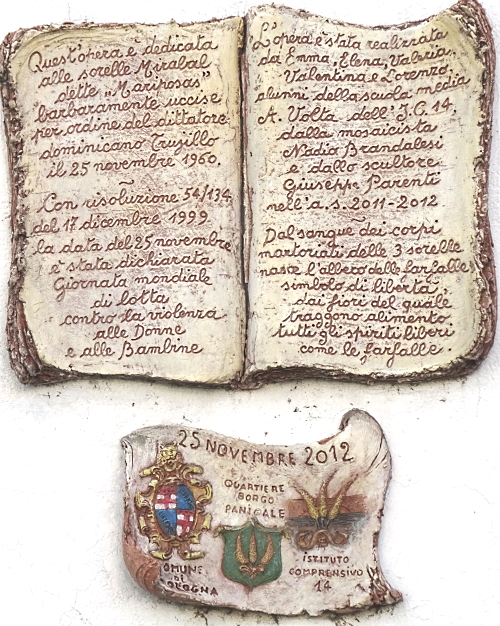 Quest'opera è dedicata
alle sorelle Mirabal
dette "Mariposas"
barbaramente uccise
per ordine del dittatore
dominicano Trujillo
il 25 novembre 1960.
Con risoluzione 54/134
del 17 dicembre 1999
la data del 25 novembre
è stata dichiarata
Giornata mondiale
di lotta
contro la violenza
alle Donne
e alle Bambine
L'opera è stata realizzata
da Emma, Elena, Valeria,
Valentina e Lorenzo,
alunni della scuola media
A. Volta dell' I.C. 14,
dalla mosaicista
Nadia Brandalesi
e dallo scultore
Giuseppe Parenti
nell'a.s. 2011-2012
Dal sangue dei corpi
martoriati delle 3 sorelle
nasce l'albero delle farfalle
simbolo di libertà
dai fiori del quale
traggono alimento
tutti gli spiriti liberi
come le farfalle
25 NOVEMBRE 2012
QUARTIERE
BORGO
PANIGALE
COMUNE
DI
BOLOGNA
ISTITUTO
COMPRENSIVO
14